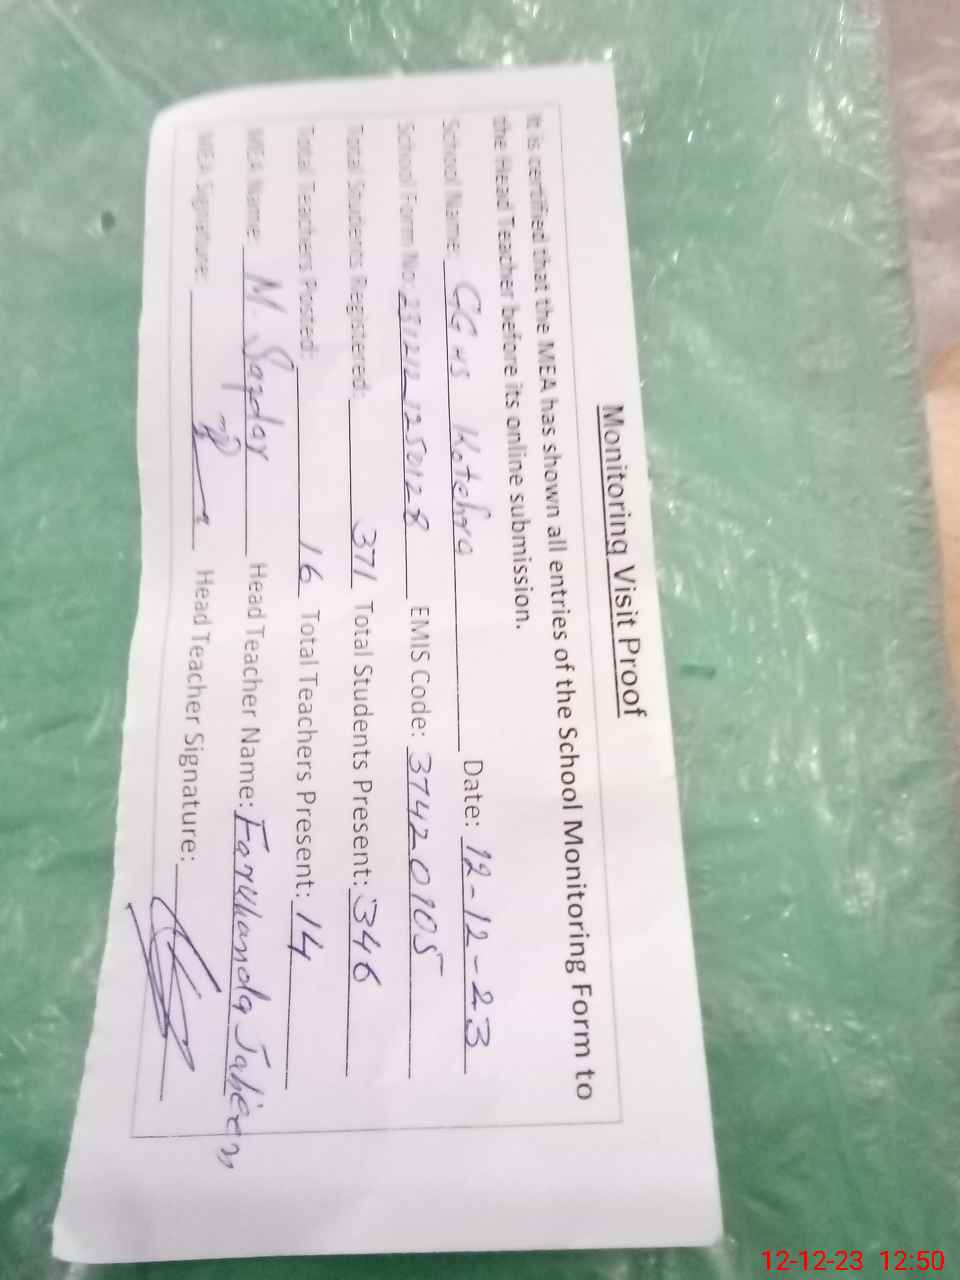 Monitoring Visit Proof
It is certified that the MEA has shown all entries of the School Monitoring Form to
the Head Teacher before its online submission.
School Name: GGHS Date: 12-12-23
School Form No: EMIS Code: 37420105
Total Students Registered: 371 Total Students Present: 346
Total Teachers Posted: 16 Total Teachers Present: 14
MEA Name: M. Head Teacher Name: Farkhanda Jabeen
MEA Signature: Head Teacher Signature:
12-12-23 12:50